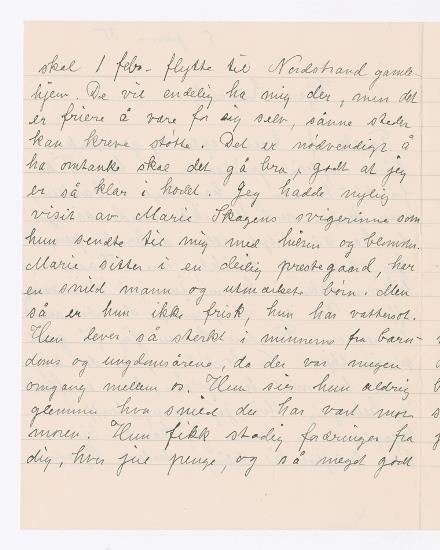 skal 1 febr. flytte til Nordstrand gamle-
hjem. De vil endelig ha mig der, men det
er friere å være for sig selv, sånne steder
kan kreve støtte. Det er nødvendigt å
ha omtanke skal det gå bra, godt at jeg
er så klar i hodet. Jeg hadde nylig
visit av Marie Skagens svigerinne som
hun sendte til mig med hilsen og blomster.
Marie sitter i en deilig prestegaard, har
en snild mann og utmærkete børn. Men
så er hun ikke frisk, hun har vattersot.
Hun lever så sterkt i minnerne fra barn-
doms og ungdomsårene, da der var megen
omgang mellem os. Hun sier hun aldrig
glemmer hva snild du har vært mot
moren. Hun fikk stadig foræringer fra
dig, hver jul penge, og så meget godt